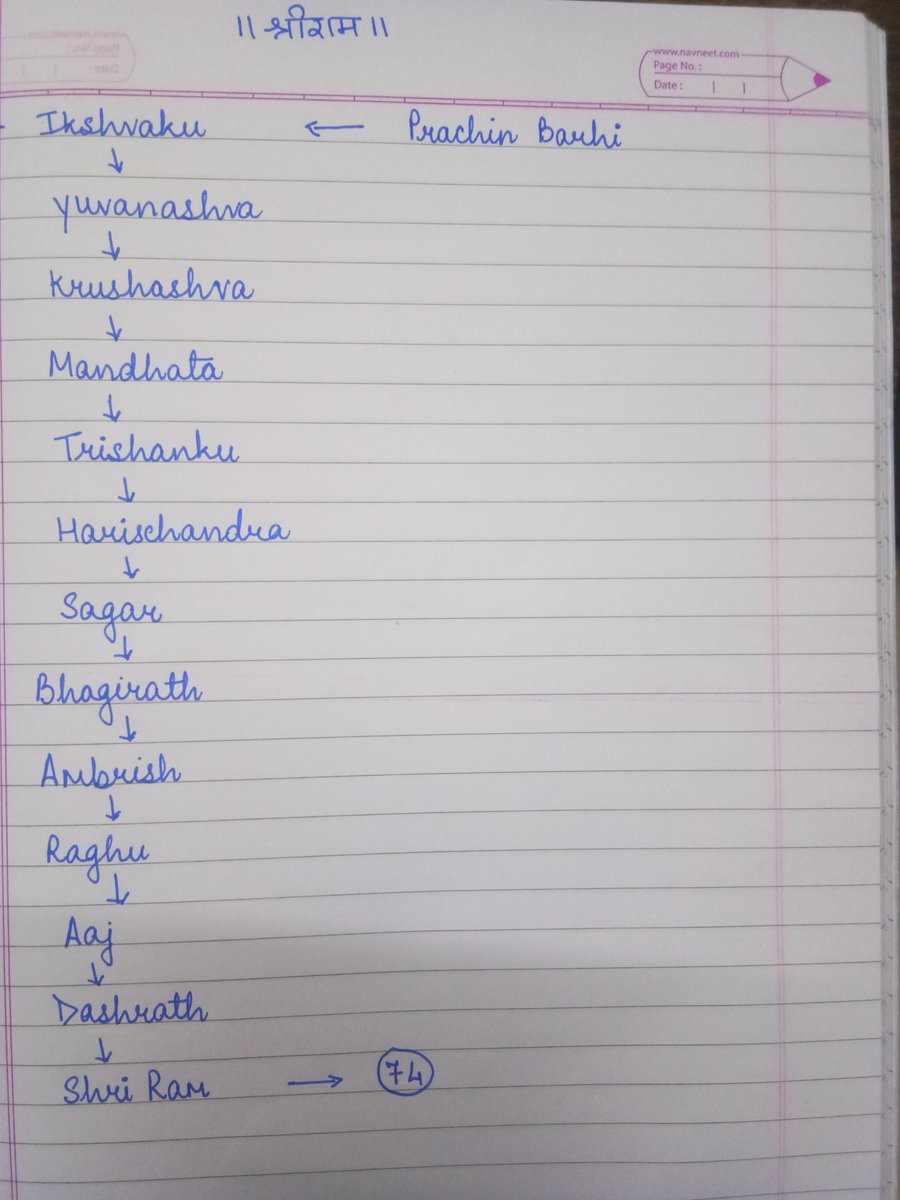 ॥ श्रीराम ॥
www.navneet.com
Page No.:
Date: | |
Ikshvaku ← Prachin Barhi
↓
Yuvanashva
↓
Krushashva
↓
Mandhata
↓
Trishanku
↓
Harischandra
↓
Sagar
↓
Bhagirath
↓
Ambrish
↓
Raghu
↓
Aaj
↓
Dashrath
↓
Shri Ram → 74